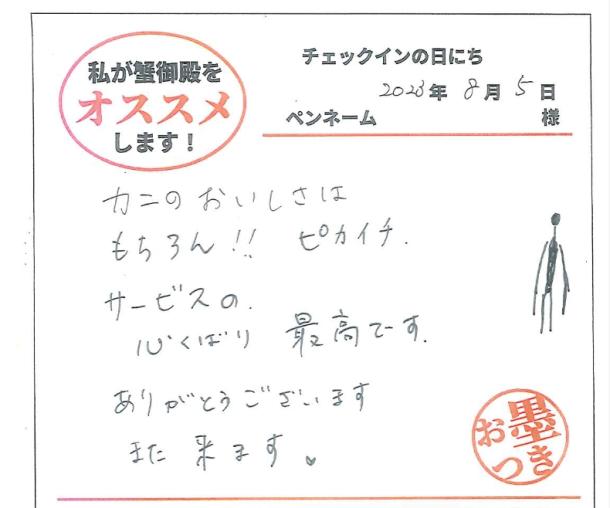 私が蟹御殿を
オススメ
します!
チェックインの日にち
2023年 8月 5日
ペンネーム 様
カニのおいしさは
もちろん!! ピカイチ.
サービスの.
心くばり 最高です.
ありがとうございます
また 来ます。
お墨
つき